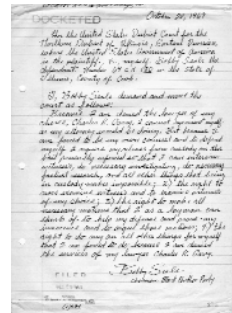 DOCKETED
October 20, 1969
In the United States District Court for the
Northern District of Illinois, Eastern Division,
the United States Government of America
is the plaintiff, v. myself, Bobby Seale the
defendant in the State of
Illinois, County of Cook:
I, Bobby Seale demand and move the
court as follows:
Because I am denied the lawyer of my
choice, Charles R. Garry, I cannot represent myself
as my attorney would be doing. But because I
am forced to be my own counsel and to defend
myself I require my release from custody
so that I can interview
witnesses, do necessary investigating, do necessary
factual research, and all other things that being
in custody makes impossible; 2) the right to
cross examine witnesses and to examine witnesses
of my choice; 3) the right to make all
necessary motions that I as a layman can
think of to help my defense and prove my
innocence and to argue those motions; 4) the
right to do any and all other things for myself
that I am forced to do because I am denied
the services of my lawyer Charles R. Garry.
Bobby Seale
chairman Black Panther Party
FILED